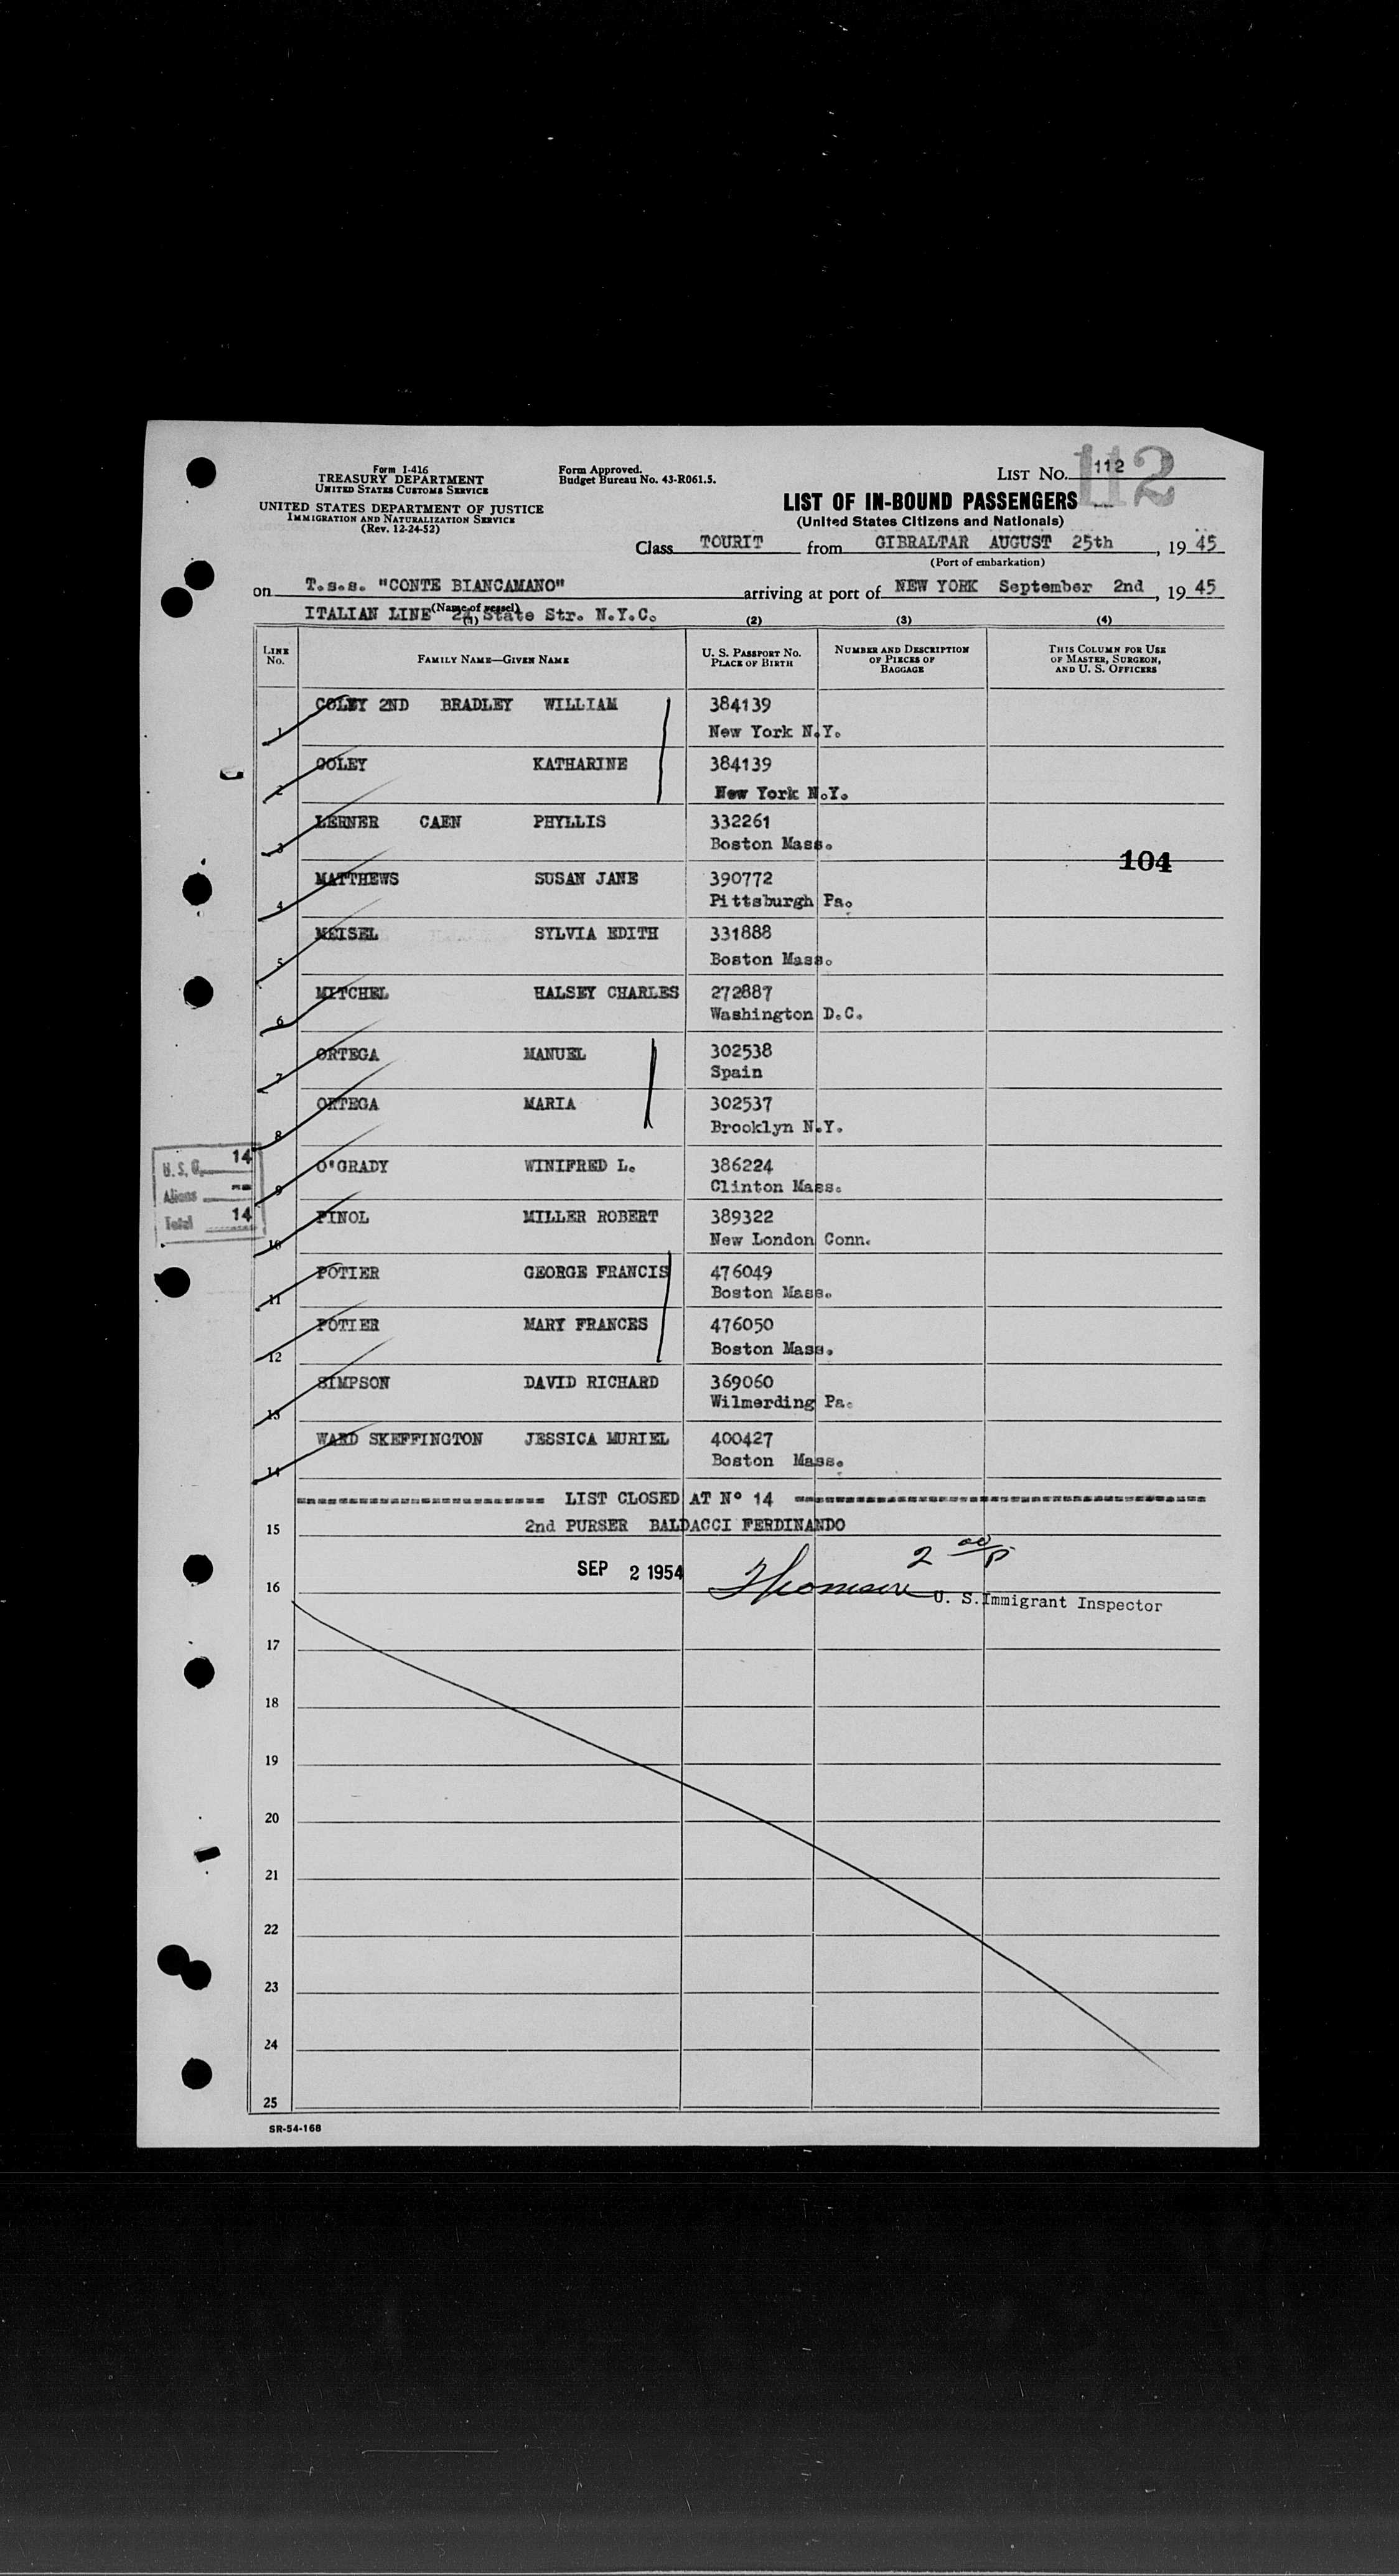 Form I-416
TREASURY DEPARTMENT
UNITED STATES CUSTOMS SERVICE
UNITED STATES DEPARTMENT OF JUSTICE
IMMIGRATION AND NATURALIZATION SERVICE
(Rev. 12-24-52)
Form Approved.
Budget Bureau No. 43-R061.5.
LIST NO. 112
112
LIST OF IN-BOUND PASSENGERS
(United States Citizens and Nationals)
Class TOURIT from GIBRALTAR AUGUST 25th, 19 45
(Port of embarkation)
on T.s.s. "CONTE BIANCAMANO" arriving at port of NEW YORK September 2nd, 19 45
(Name of vessel)
ITALIAN LINE 24 State Str. N.Y.C.
(1) (2) (3) (4)
LINE NO. FAMILY NAME—GIVEN NAME U. S. PASSPORT NO. PLACE OF BIRTH NUMBER AND DESCRIPTION OF PIECES OF BAGGAGE THIS COLUMN FOR USE OF MASTER, SURGEON, AND U. S. OFFICERS
1 COLEY 2ND BRADLEY WILLIAM 384139
New York N.Y.
2 COLEY KATHARINE 384139
New York N.Y.
3 LERNER CAEN PHYLLIS 332261
Boston Mass.
104
4 MATTHEWS SUSAN JANE 390772
Pittsburgh Pa.
5 MEISEL SYLVIA EDITH 331888
Boston Mass.
6 MITCHEL HALSEY CHARLES 272887
Washington D.C.
7 ORTEGA MANUEL 302538
Spain
8 ORTEGA MARIA 302537
Brooklyn N.Y.
U. S. C. 14
Aliens --
Total 14
9 O'GRADY WINIFRED L. 386224
Clinton Mass.
10 PINOL MILLER ROBERT 389322
New London Conn.
11 POTIER GEORGE FRANCIS 476049
Boston Mass.
12 POTIER MARY FRANCES 476050
Boston Mass.
13 SIMPSON DAVID RICHARD 369060
Wilmerding Pa.
14 WARD SKEFFINGTON JESSICA MURIEL 400427
Boston Mass.
LIST CLOSED AT Nº 14
15 2nd PURSER BALDACCI FERDINANDO
2 00/P
16 SEP 2 1954 Thomson U. S. Immigrant Inspector
17
18
19
20
21
22
23
24
25
SR-54-168